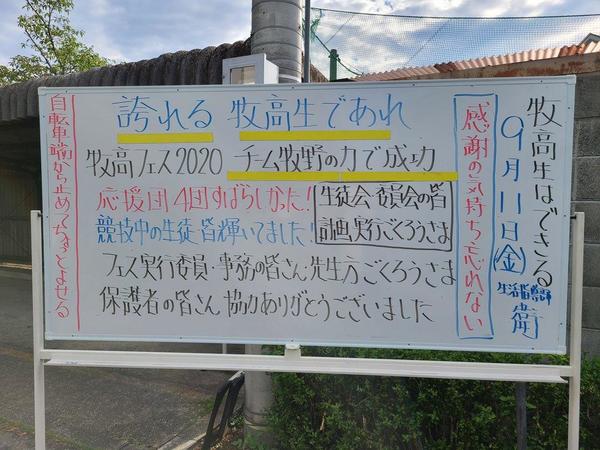 牧高生はできる
9月11日(金)
衛
感謝の気持ち忘れない
誇れる 牧高生であれ
牧高フェス2020 チーム牧野の力で成功
応援団4団すばらしかった!
競技中の生徒 皆輝いてました!
生徒会 委員会の皆
計画 実行ごくろうさま
フェス実行委員・事務の皆さん 先生方ごくろうさま
保護者の皆さん 協力ありがとうございました
自転車 端から止めて